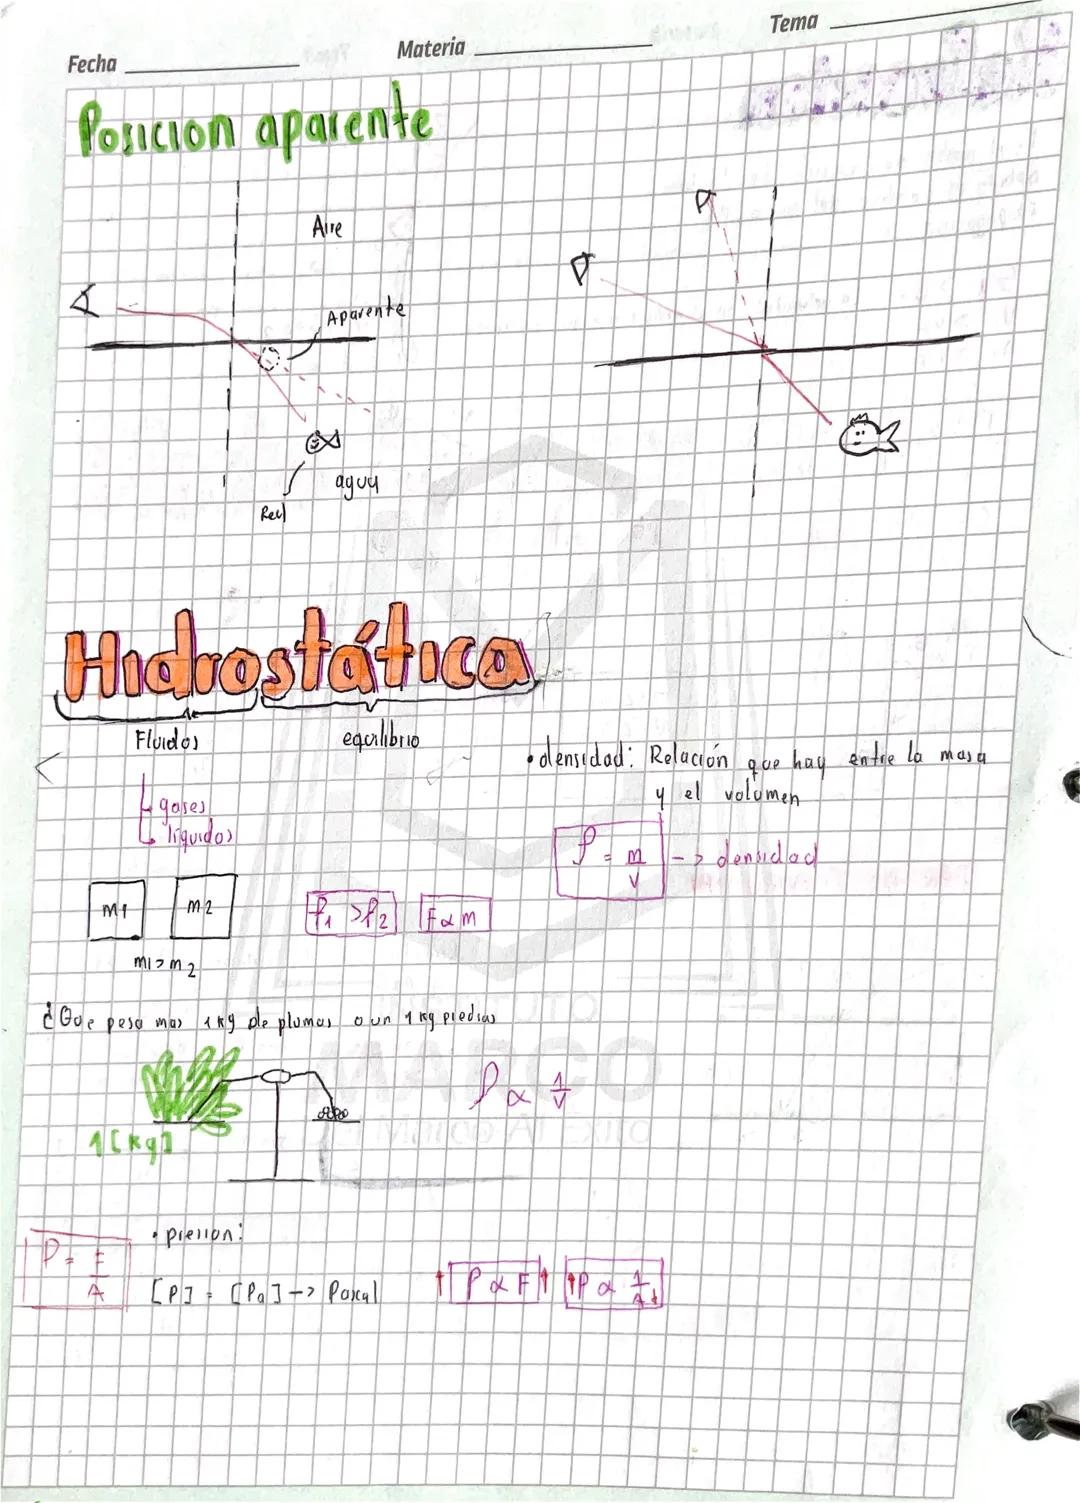 Fecha
Materia
Tema
Posicion aparente
Aire
Aparente
agua
Real
Hidrostática
Fluidos
equilibrio
gases
líquidos
• densidad: Relación que hay entre la masa
y el volumen
ρ = m/V -> densidad
m1
m2
ρ1 > ρ2
F α m
m1 > m2
¿Que pesa mas 1kg de plumas o un 1kg piedras
1[Kg]
ρ α 1/V
• presion:
P = F/A
[P] = [Pa] -> Pascal
↑ P α F ↑
↑P α 1/A↓
MARCO